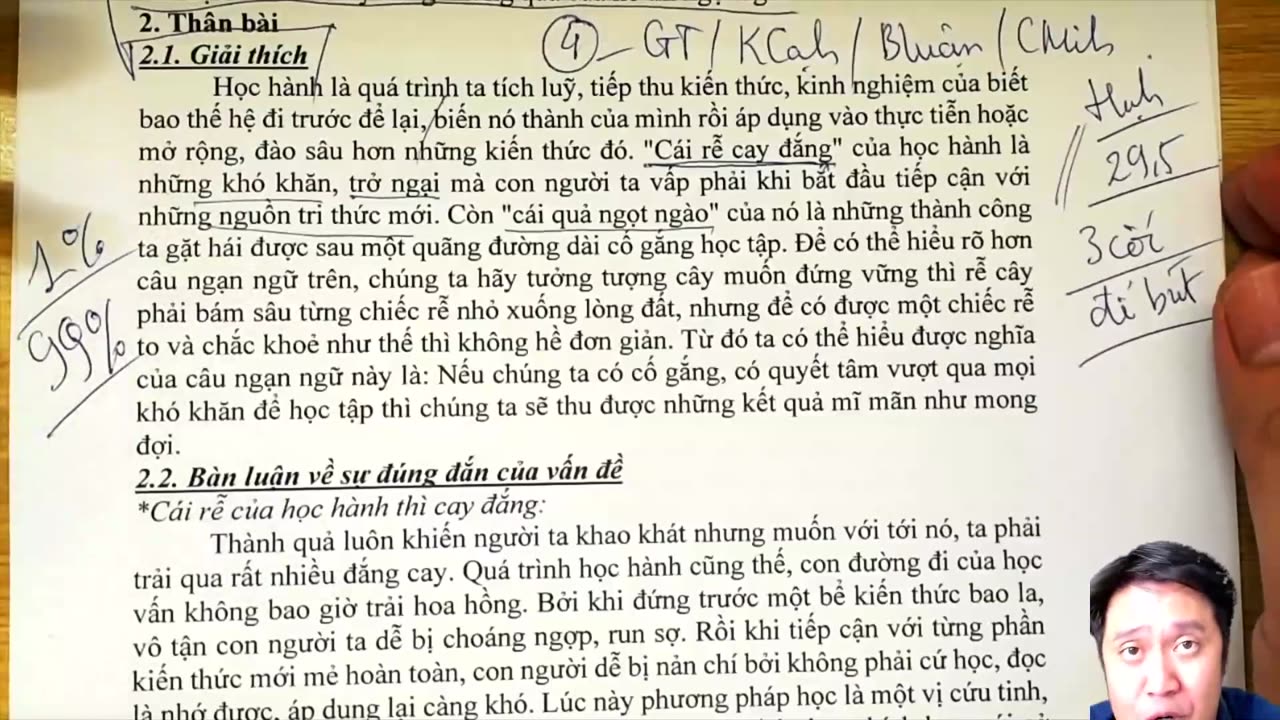 2. Thân bài
4 - GT / KCạh / Bluận / CMih
2.1. Giải thích
Học hành là quá trình ta tích luỹ, tiếp thu kiến thức, kinh nghiệm của biết
bao thế hệ đi trước để lại, biến nó thành của mình rồi áp dụng vào thực tiễn hoặc
mở rộng, đào sâu hơn những kiến thức đó. "Cái rễ cay đắng" của học hành là
những khó khăn, trở ngại mà con người ta vấp phải khi bắt đầu tiếp cận với
những nguồn tri thức mới. Còn "cái quả ngọt ngào" của nó là những thành công
ta gặt hái được sau một quãng đường dài cố gắng học tập. Để có thể hiểu rõ hơn
câu ngạn ngữ trên, chúng ta hãy tưởng tượng cây muốn đứng vững thì rễ cây
phải bám sâu từng chiếc rễ nhỏ xuống lòng đất, nhưng để có được một chiếc rễ
to và chắc khoẻ như thế thì không hề đơn giản. Từ đó ta có thể hiểu được nghĩa
của câu ngạn ngữ này là: Nếu chúng ta có cố gắng, có quyết tâm vượt qua mọi
khó khăn để học tập thì chúng ta sẽ thu được những kết quả mĩ mãn như mong
đợi.
1%
99%
29,5
3 cời
đí bút
2.2. Bàn luận về sự đúng đắn của vấn đề
*Cái rễ của học hành thì cay đắng:
Thành quả luôn khiến người ta khao khát nhưng muốn với tới nó, ta phải
trải qua rất nhiều đắng cay. Quá trình học hành cũng thế, con đường đi của học
vấn không bao giờ trải hoa hồng. Bởi khi đứng trước một bể kiến thức bao la,
vô tận con người ta dễ bị choáng ngợp, run sợ. Rồi khi tiếp cận với từng phần
kiến thức mới mẻ hoàn toàn, con người dễ bị nản chí bởi không phải cứ học, đọc
là nhớ được, áp dụng lại càng khó. Lúc này phương pháp học là một vị cứu tinh,